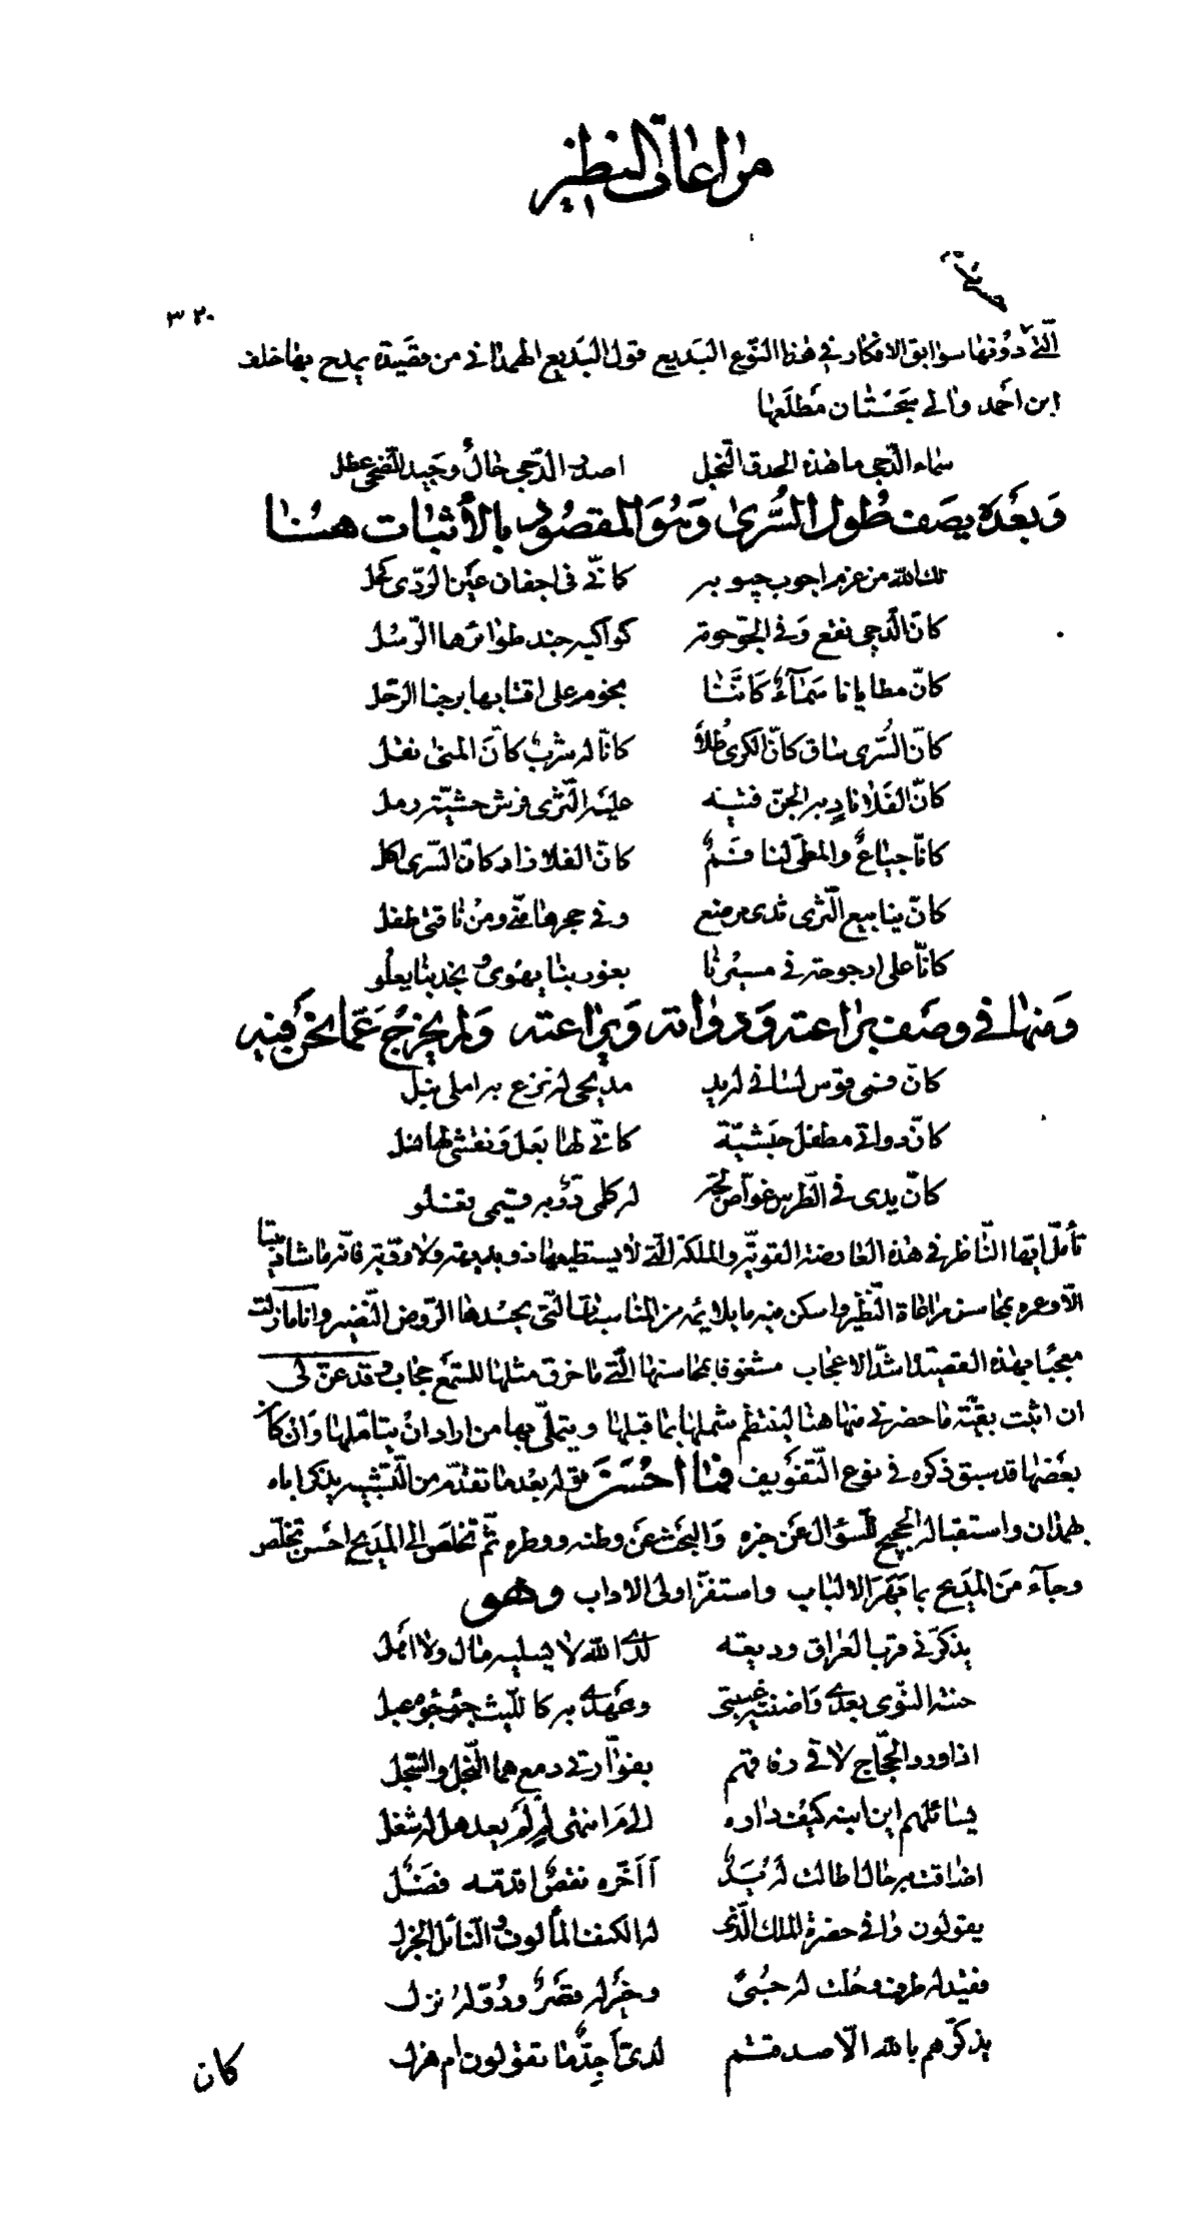 مراعاة النظير
٣٢٠
الّتي دونها سوابق الافكار في هٰذا النّوع البَديع قول البَديع الهمذاني من قصَيدة يمدح بها خلف
ابن احمَد والي سجَسْتان مَطلَعها
سماء الدّجى ما هٰذه الحدق النّجل اصدر الدّجى حالٌ وجَيد الضّحى عطل
وَبعَدَه يصَف طُول السُّرىٰ وَهُوَ المقصُود بالأثبات هُنا
لك اللّه من عزم اجوب جيوبه كانّي في اجفان عَين الرّدى كحل
كانّ الدّجى نقع وَفي الجوّ حومة كواكبه جند طوائرها الرّسل
كانّ مطايانا سَمَآءٌ كَانَّنا نجوم على اقتابها برجنا الرّحل
كانّ السُّرى ساق كانّ الكرىٰ طُلاً كانّا له شربٌ كانّ المنىٰ نقل
كانّ الفَلا نادٍ به الجنّ فتية عليَه الثّرى فرش حشيّته رمل
كانّا جياعٌ والمطيّ لنا فَمٌ كانّ الفلا زاد كانّ السّرى اكل
كانّ ينابيع الثّرى ثدى مرضع وفي حجرها منّي ومنْ ناقتي طفل
كانّا على ارجوحة في مسيْرنا بغور بنا يهوى ونجد بنا يعلو
وَمنها في وصَف براعته وَدواته وَيراعته وَلم يخرُج عَمّا نحن فيه
كانّ فمى قوس لساني له يد مديحى له نزع به املى نبل
كانّ دواتي مطفل حبَشيّة كانّي لها بَعل وَنقشي لها نسل
كانّ يدى في الطّرس غوّاص لجّة له كلمى درّ به قيمى تغلو
تأمّل ايّها النّاظر في هذه العارضة القويّة والملكة الّتي لا يستطيعها ذو بديهة ولا رويّة فانّه ما شاد بيتا
الّا وعمره بمحاسن مراعاة النّظير واسكن فيه ما يلايمه من المناسبات الّتى يحسُدها الرّوض النّضير وانا ما زلت
معجبًا بهٰذه القصيدة اشدّ الاعجاب مشغوفا بمحاسنها الّتي ما خرق مثلها للسّمع حجاب وقد عنّ لى
ان اثبت بقيّة ما حضرني منها هنا لينتظم شملها بما قبلها ويتملّى بها من اراد انْ يتامّلها وَانْ كان
بعَضها قد سبق ذكره في نوع التّفوَيف فما أحْسَنَ قوله بعْد ما تقدّم من التّشبيه يذكر اباه
بهمذان واستقباله الحجيج للسّؤال عَن خبره وَالبحَث عَن وطنه ووطره ثمّ تخلّصَ الى المدَيح احسَن تخلّص
وجآء منَ المدَيح بما بَهَرَ الالباب واستفزّ اولى الاداب وهو
يذكّرني قرب العراق وديعة لدى اللّه لا يسليه مال ولا اهَل
حنته النّوى بعدى وَاضنته غيبتى وعَهدى به كاللّيث جؤجؤه عبل
اذا ورد الحجّاج لاقى رفاقهم بفوّارتي دمع هما النّجل والسّجل
يسائلهم اين ابنه كيف داره الىٰ مَ انتهىٰ لِمْ لَمْ يعد هل له شغل
اضاقت به حال اطالت له يَدٌ أاَخّره نقصٌ اقدّمه فضَلٌ
يقولون وافى حضرة الملك الّذى له الكنف المألوف والنّائل الجزل
ففيْد له طرف وحُلّت له حُبىً وخيَر له قصَرٌ ودُرّ له نزل
يذكّرهم باللّه الّا صدقتم لدىّ أجِدٌّ ما تقولون أم هزل
كان